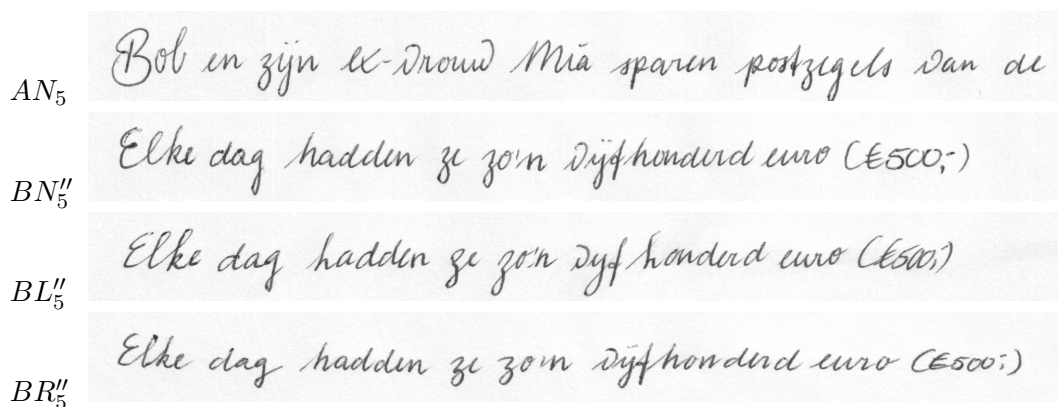 AN5 Bob en zijn ex-vrouw Mia sparen postzegels van de
BN5'' Elke dag hadden ze zo'n vijfhonderd euro (€500,-)
BL5'' Elke dag hadden ze zo'n vijfhonderd euro (€500,-)
BR5'' Elke dag hadden ze zo'n vijfhonderd euro (€500,-)